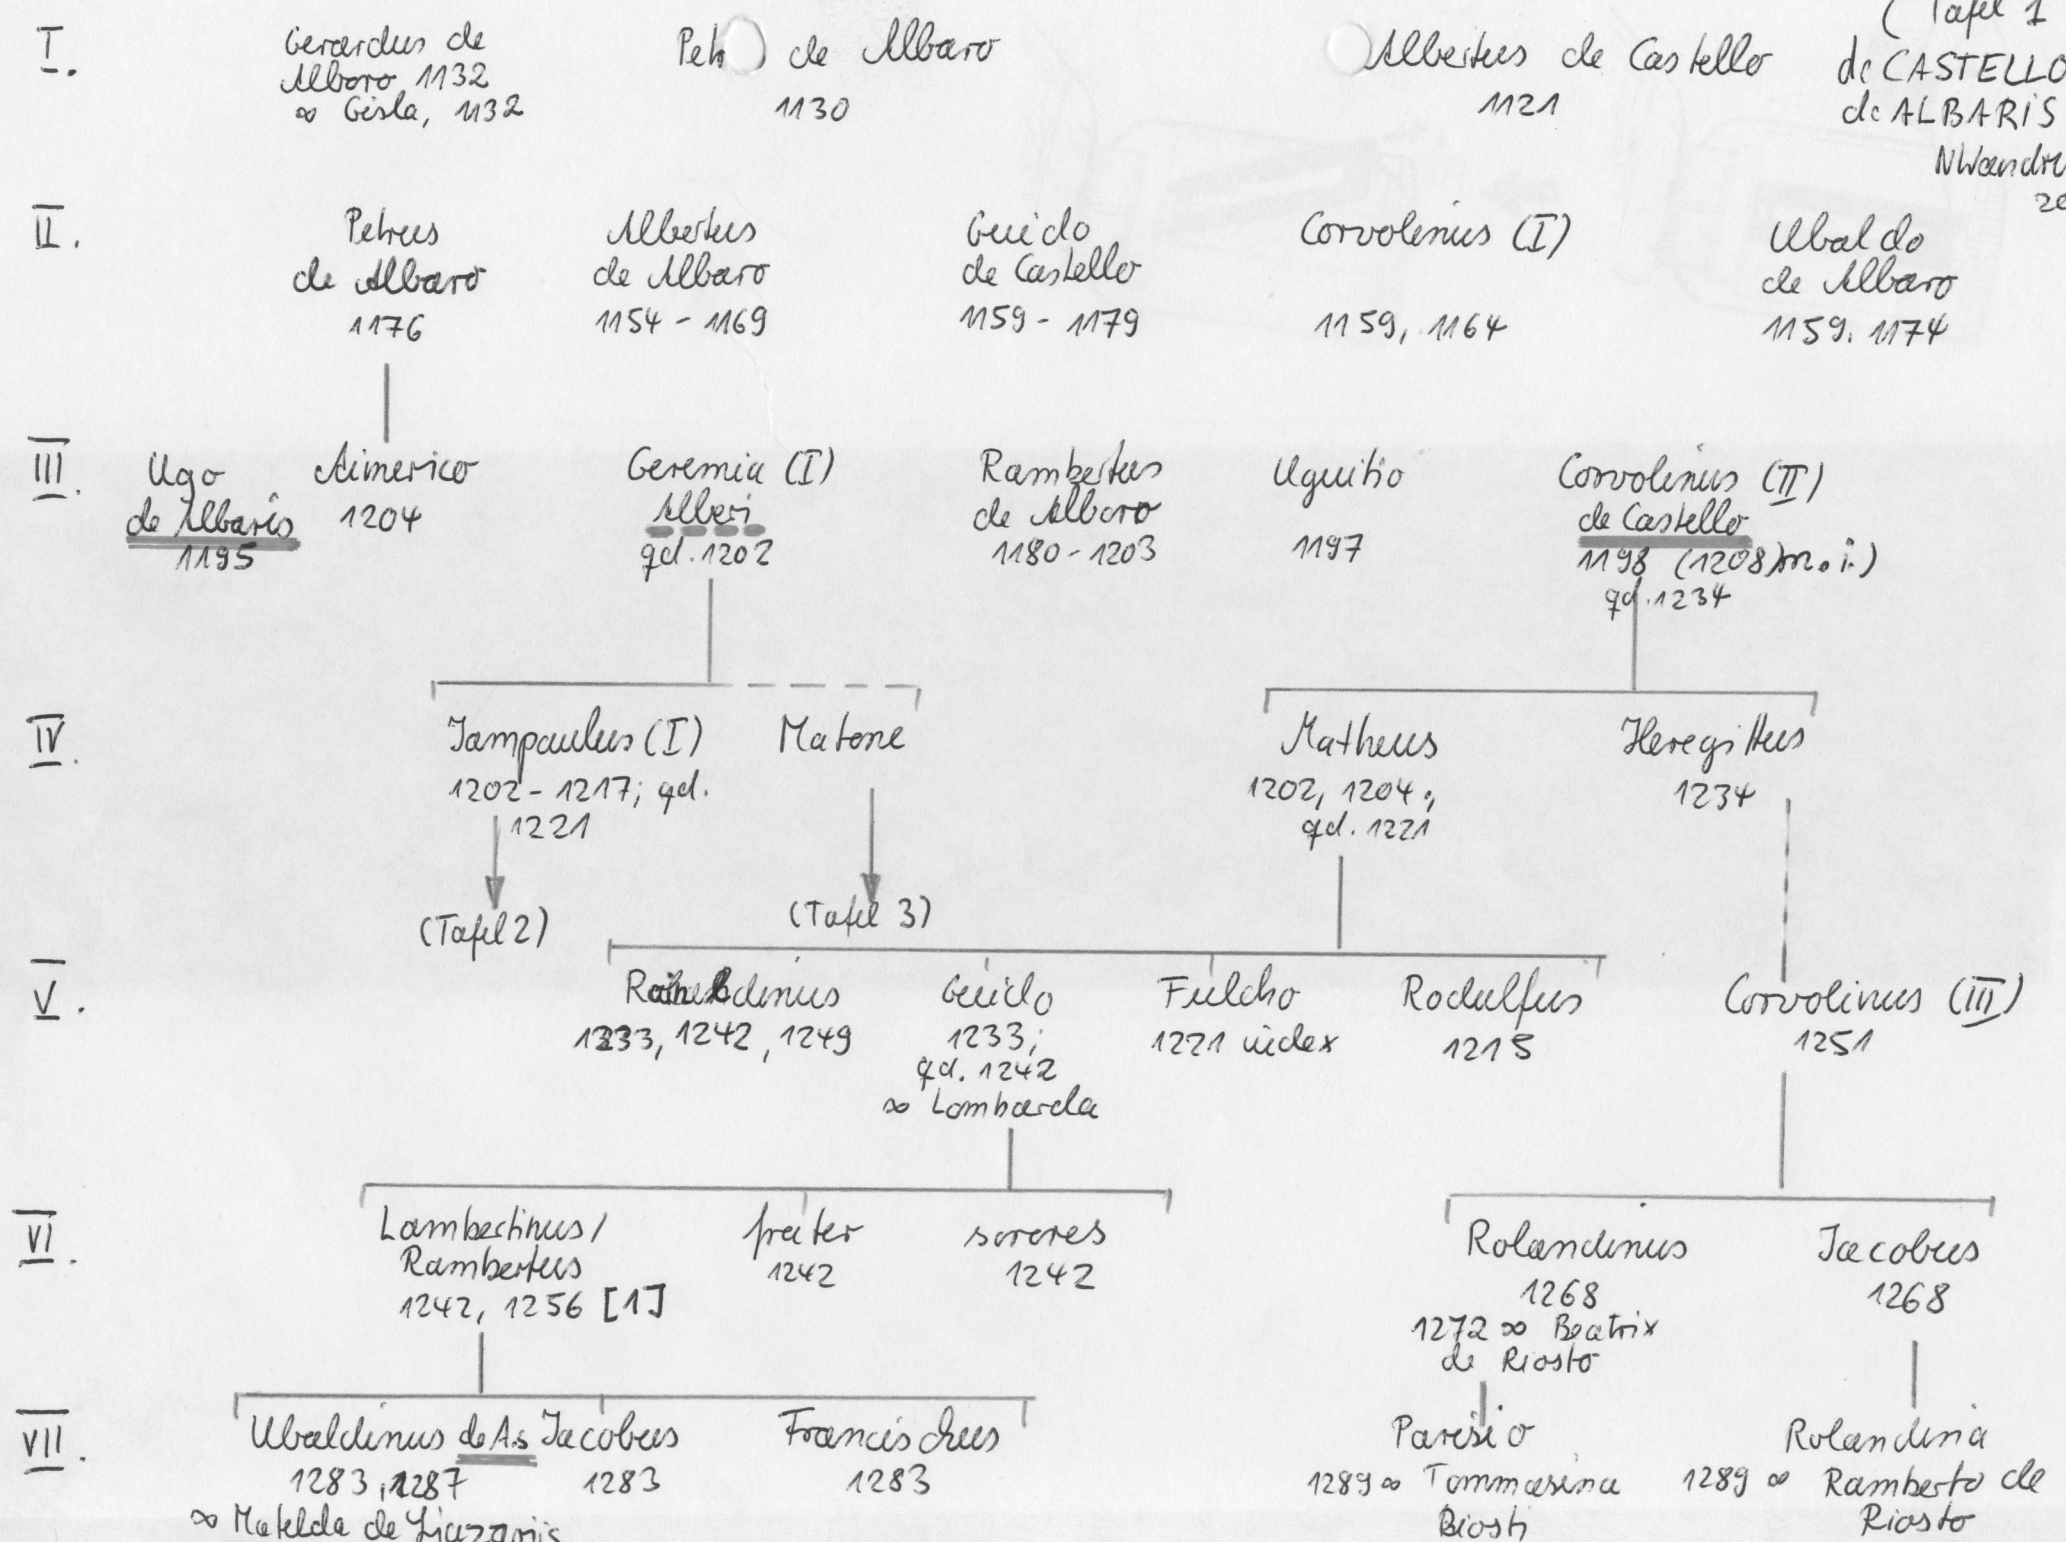 I.
Gerardus de
Albaro 1132
∞ Gisla, 1132
de Albaro
1130
Albertus de Castello
1121
(Tafel 1
de CASTELLO
de ALBARIS
II.
Petrus
de Albaro
1176
Albertus
de Albaro
1154 - 1169
Guido
de Castello
1159 - 1179
Corvolinus (I)
1159, 1164
Ubaldo
de Albaro
1159. 1174
III.
Ugo
de Albaris
1195
Aimerico
1204
Geremia (I)
Alberi
qd. 1202
Rambertus
de Albaro
1180 - 1203
Uguitio
1197
Corvolinus (II)
de Castello
1198 (1208) m. i.)
qd. 1234
IV.
Jampaulus (I)
1202 - 1217; qd.
1221
(Tafel 2)
Matone
(Tafel 3)
Matheus
1202, 1204;
qd. 1221
Heregittus
1234
V.
1233, 1242, 1249
Guido
1233;
qd. 1242
∞ Lombarda
Fulcho
1221 iudex
Rodulfus
1215
Corvolinus (III)
1251
VI.
Lambertinus/
Rambertus
1242, 1256 [1]
frater
1242
sorores
1242
Rolandinus
1268
1272 ∞ Beatrix
de Riosto
Jacobus
1268
VII.
Ubaldinus de A.s
1283, 1287
∞ Matelda de
Jacobus
1283
Francischus
1283
Parisio
1289 ∞ Tommasina
Riosti
Rolandina
1289 ∞ Ramberto de
Riosto